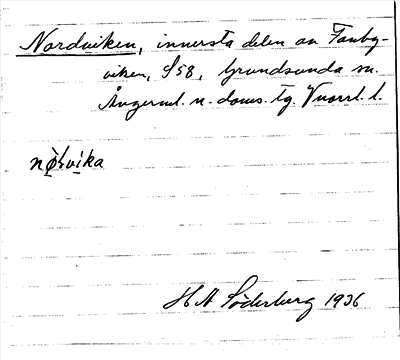 Nordviken, innersta delen av Fanby-
viken, S58, Grundsunda sn.
Ångerml. n. doms. tg. Vnorrl. l.
nø̱ɽvi̱ka
H A Söderberg 1936